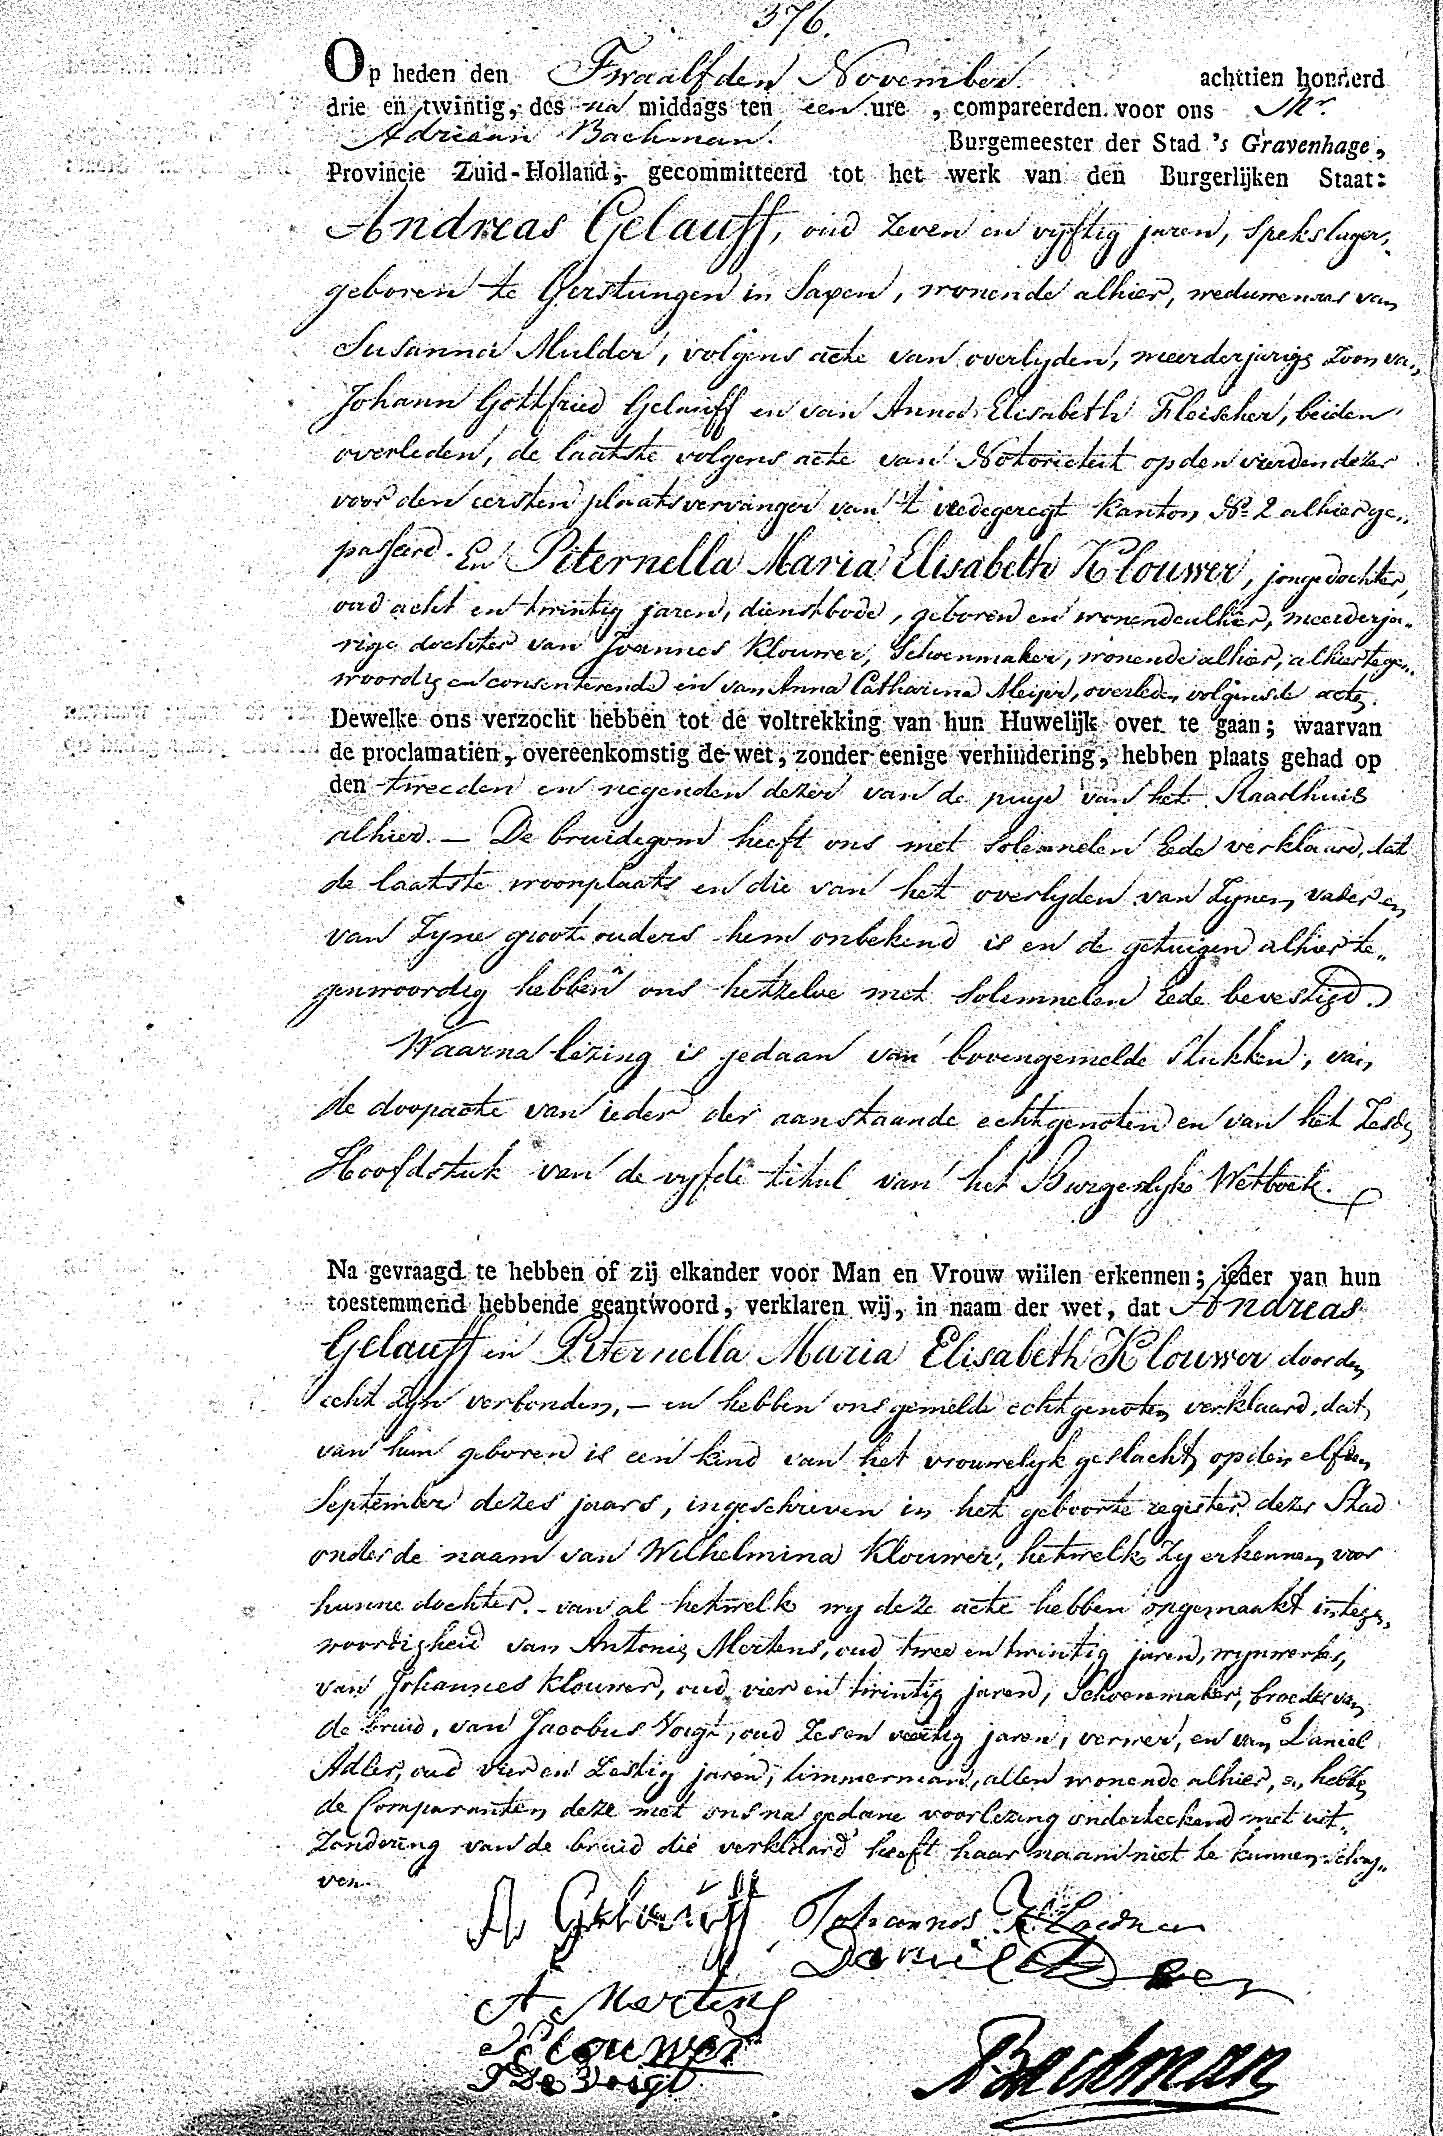 376.
Op heden den Twaalfden November achttien honderd
drie en twintig, des na middags ten een ure, compareerden voor ons Mr
Adriaan Bachman. Burgemeester der Stad 's Gravenhage,
Provincie Zuid-Holland, gecommitteerd tot het werk van den Burgerlijken Staat:
Andreas Gelauff, oud zeven en vyftig jaren, spekslager,
geboren te Gerstungen in Saxen, wonende alhier, weduwenaar van
Susanna Mulder, volgens acte van overlyden, meerderjarige zoon van
Johann Gottfried Gelauff en van Anna Elisabeth Fleischer, beiden
overleden, de laatste volgens acte van Notorieteit op den vierden dezer
voor den eersten plaatsvervanger van 't vredegeregt kanton No 2 alhier ge„
passeerd. En Piternella Maria Elisabeth Klouwer, jongedochter,
oud acht en twintig jaren, dienstbode, geboren en wonende alhier, meerderja„
rige dochter van Joannes Klouwer, Schoenmaker, wonende alhier, alhier tegen„
woordig en consenterende en van Anna Catharina Meijer, overleden volgens de acte.
Dewelke ons verzocht hebben tot de voltrekking van hun Huwelijk over te gaan; waarvan
de proclamatiën, overeenkomstig de wet, zonder eenige verhindering, hebben plaats gehad op
den tweeden en negenden dezer van de puye van het Raadhuis
alhier. — De bruidegom heeft ons met solemnelen Eede verklaard, dat
de laatste woonplaats en die van het overlyden van zynen vader en
van zyne grootouders hem onbekend is en de getuigen alhier te„
genwoordig hebben ons hetzelve met solemnelen Eede bevestigd.
Waarna lezing is gedaan van bovengemelde stukken, van
de doopacte van ieder der aanstaande echtgenoten en van het zesde
Hoofdstuk van de vyfde titul van het Burgerlyke Wetboek.
Na gevraagd te hebben of zij elkander voor Man en Vrouw willen erkennen; ieder van hun
toestemmend hebbende geantwoord, verklaren wij, in naam der wet, dat Andreas
Gelauff en Piternella Maria Elisabeth Klouwer door den
echt zyn verbonden, — en hebben ons gemelde echtgenoten verklaard, dat
van hun geboren is een kind van het vrouwelyk geslacht op den elfden
September dezes jaars, ingeschreven in het geboorte register dezer Stad
onder de naam van Wilhelmina Klouwer, hetwelk zy erkennen voor
hunne dochter. — van al hetwelk wy deze acte hebben opgemaakt in tegen„
woordigheid van Antonie Mertens, oud twee en twintig jaren, mynwerker,
van Johannes Klouwer, oud vier en twintig jaren, Schoenmaker, broeder van
de bruid, van Jacobus Voigt, oud zes en veertig jaren, verwer, en van Daniel
Adler, oud vier en zestig jaren, timmerman, allen wonende alhier, en hebben
de Comparanten deze met ons na gedane voorlezing onderteekend met uit„
zondering van de bruid die verklaard heeft haar naam niet te kunnen schry„
ven.
A Gelauff Johannes Klouwer
Daniel
A Mertens
Klouwer
Voigt
Bachman